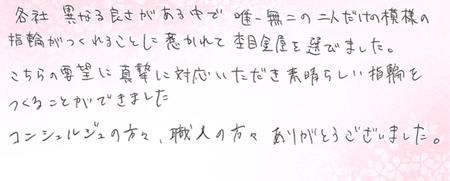 各社 異なる良さがある中で 唯一無二の二人だけの模様の
指輪がつくれることに惹かれて 杢目金屋を選びました。
こちらの要望に真摯に対応いただき素晴らしい指輪を
つくることができました
コンシェルジュの方々、職人の方々 ありがとうございました。